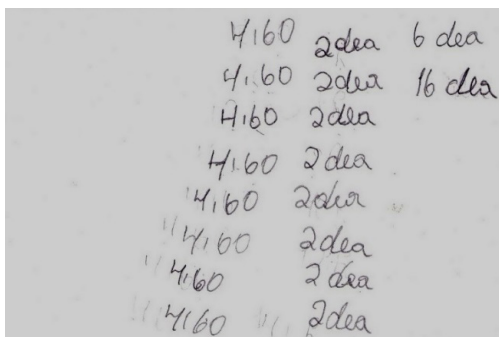 4,60 2 dea 6 dea
4,60 2 dea 16 dea
4,60 2 dea
4,60 2 dea
4,60 2 dea
4,60 2 dea
4,60 2 dea
4,60 2 dea